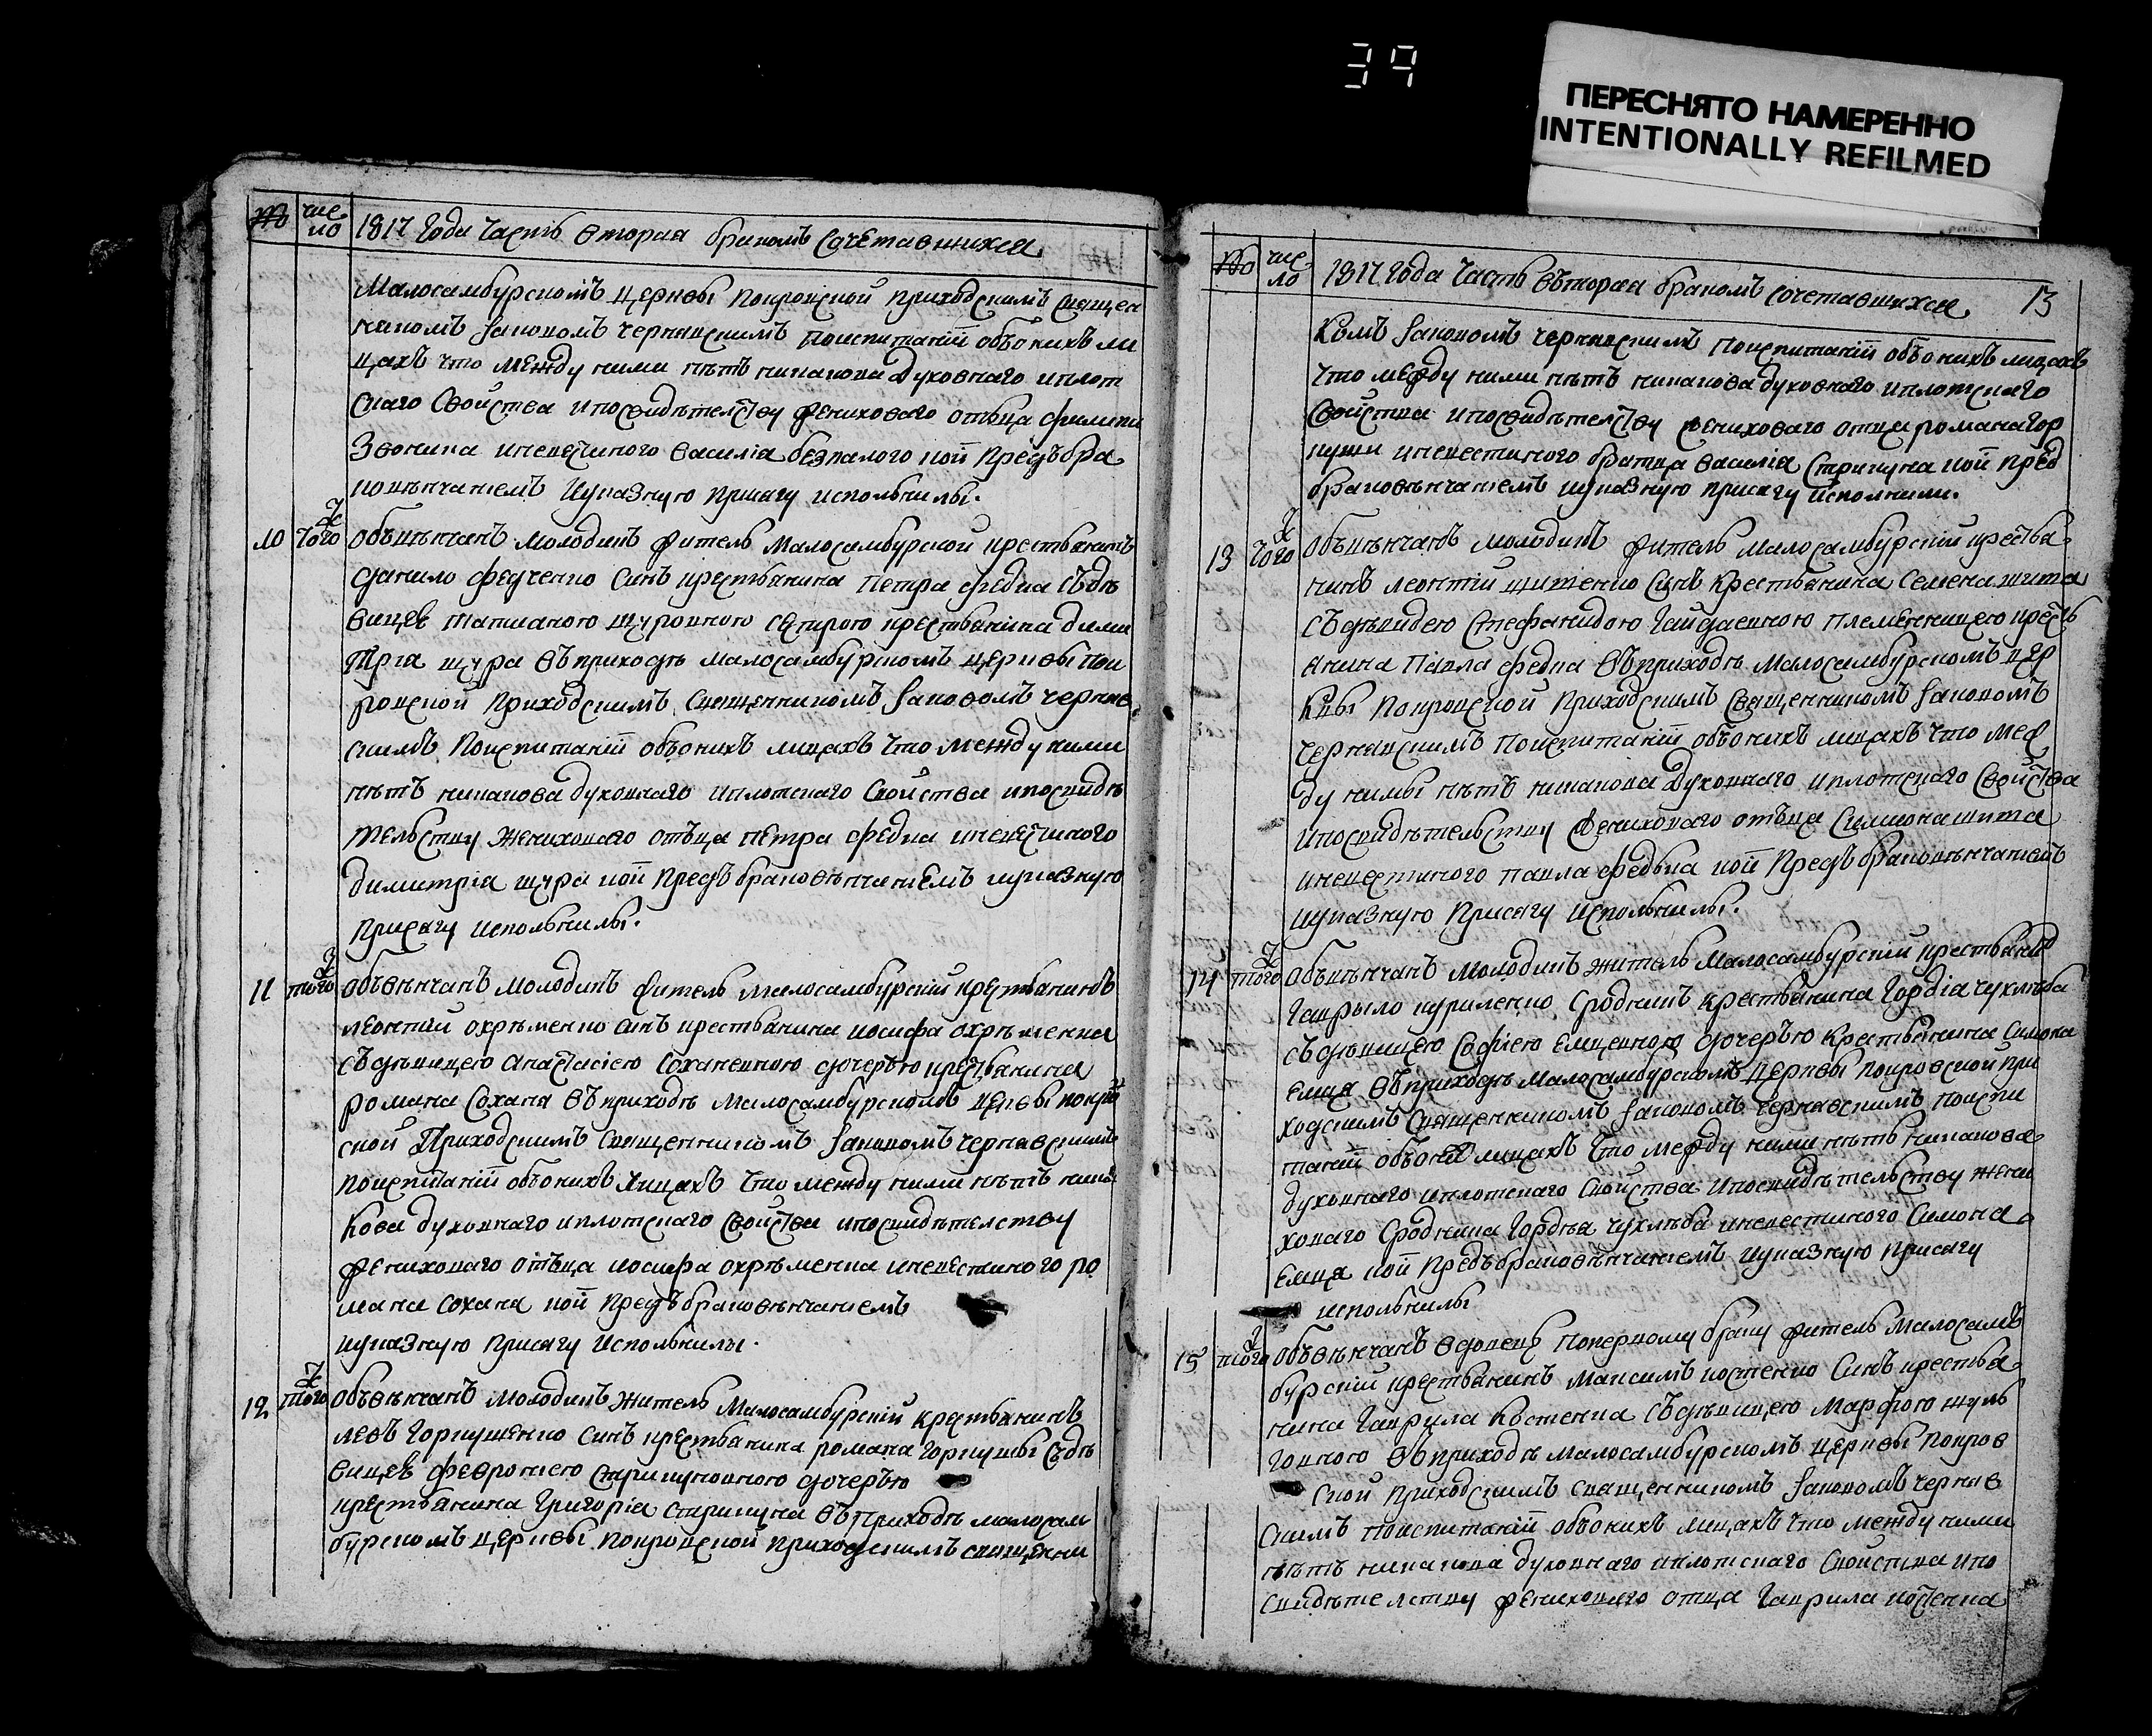 39
ПЕРЕСНЯТО НАМЕРЕННО
INTENTIONALLY REFILMED
№ число 1817 Года Часть вторая бракомъ Сочетавшихся
Малосамбурскомъ церквы Покровской Приходскимъ Священ
никомъ Іаковомъ Чернявскимъ поиспитаніи объ онихъ ли
цахъ что между ними нѣтъ никакова Духовнаго иплот
скаго Свойства ипосвидѣтелству жениховаго отъца Филипа
Звоника иневестиного Василіа безпалого кои Предъ бра
ковѣнчаніемъ иуказную присягу исполнилы.
10 Того ж Обвѣнчанъ Молодикъ житель Малосамбурской крестянинъ
данило Федченко Синъ крестьянина Петра Федка Съдѣ
вицев татианою Щуровною Сестрою крестьянина дими
трія щура въ приходѣ Малосамбурскомъ церквы Пок
ровской Приходскимъ Священникомъ Іаковомъ чернав
скимъ Поиспитаніи объ онихъ лицахъ что между ними
нѣтъ никакова духовнаго иплотскаго Свойства ипосвидѣ
тельству жениховаго отъца Петра Федка иневестиного
димитріа щура кои Предъ браковѣнчаніемъ иуказную
Присягу исполнилы.
11 того ж Объвѣнчанъ Молодикъ житель Малосамбурскій крестянинъ
леонтій охрѣменко синъ крестьянина иосифа охрѣменка
Съдѣвицею Анастасіею Соханевною дочерью крестьянина
романа Сохана въ приходѣ Малосамбурскомъ церквы покров
ской Приходскимъ Священникомъ Іаковомъ чернявскимъ
поиспитаніи объ онихъ лицахъ что между ними нѣтъ ника
кова духовнаго иплотскаго Свойства ипосвидѣтелству
жениховаго отъца иосифа охрѣменка иневестиного ро
мана Сохана кои Предъ браковѣнчаніемъ
иуказную Присягу Исполнилы.
12 того ж Объвѣнчанъ Молодикъ Житель Малосамбурскій крестьянинъ
левъ Горкушенко Синъ крестьянина романа Горкушы Съдѣ
вицев февроніею Стрикуновною дочерью
крестьянина Григоріа Стрикуна въ Приходѣ малосам
бурскомъ церквы Покровской Приходскимъ священни
№ число 1817 Года Часть въторая бракомъ Сочетавшихся 13
комъ Іаковомъ Чернявскимъ Поиспитаніи объ онихъ лицахъ
что между ними нѣтъ никакова духовнаго иплотскаго
Свойства ипосвидѣтелству жениховаго отца романа Гор
куши иневестиного братца Василія Стрикуна кои Пред
браковѣнчаніемъ иуказную присягу исполнили.
13 того ж Объвѣнчанъ молодикъ житель Малосамбурскій крестья
нинъ леонтій щитенко Синъ Крестьянина Семена щита
Съдѣвицею Стефанидою Гайдаевною племенницею кресть
янина Павла Федка въ приходѣ Малосамбурскомъ цер
квы Покровской Приходскимъ Священникомъ Іаковомъ
Чернявскимъ Поиспитаніи объ онихъ лицахъ что меж
ду нимы нѣтъ никакова Духовнаго иплотскаго Свойства
ипосвидѣтельству жениховаго отъца Симиона щита
иневестиного Павла Федька кои Предъ браковѣнчаніемъ
иуказную Присягу исполнилы.
14 того ж Объвѣнчанъ Молодикъ житель Малосамбурскій крестьянинъ
Гаврыло куриленко Сродникъ крестьянина Гордіа чухлѣба
Съдѣвицею Софиею Емцевною дочерью Крестьянина Симона
Емця въ приходѣ Малосамбурскомъ церквы покровской при
ходскимъ Священникомъ Іаковомъ Чернявскимъ Поиспи
таніи объ онихъ лицахъ что между ними нѣтъ никакова
духовнаго иплотскаго Свойства ипосвидѣтельству жени
ховаго Сродника Гордѣа чухлѣба иневестиного Симона
Емця кои Предъ браковѣнчаніемъ иуказную Присягу
исполнилы
15 того ж Объвѣнчанъ вдовецъ Поперъвому браку житель Малосам
бурскій крестьянинъ Максимъ костенко Синъ крестья
нина Гаврила Костенка Съдѣвицею Марфою шуль
говною въ приходѣ Малосамбурскомъ церквы Покров
ской Приходскимъ священникомъ Іаковомъ чернав
скимъ поиспитаніи объ онихъ лицахъ что между ними
нѣтъ никакова духовнаго иплотскаго Свойства ипо
свидѣтелству жениховаго отца Гаврила костенка